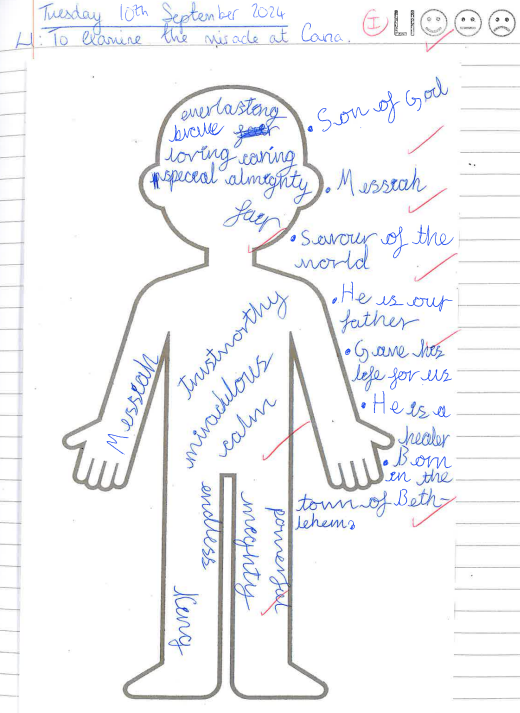 Tuesday 10th September 2024
LI: To examine the miracle at Cana.
I LI
everlasting
brave
loving caring
special almighty
fair
• Son of God
• Messiah
• Savour of the
world
• He is our
father
• Gave his
life for us
• He is a
healer
• Born
in the
town of Beth-
lehem
trustworthy
miraculous
calm
Messiah
endless
meighty
powerful